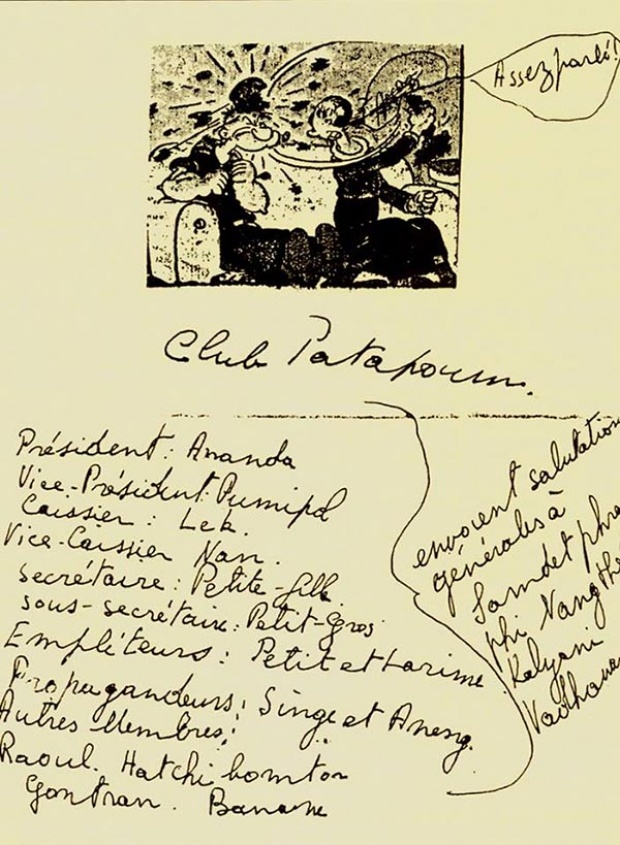 Assez parlé!
Club Patapoum.
Président: Ananda
Vice-Président: Pumipol
Caissier: Lek.
Vice-Caissier Nan.
Secrétaire: Petite-fille
sous-secrétaire: Petit-Gros
Empléteurs: Petit et Larime
Propagandeurs: Singe et Aneng.
Autres Membres:
Raoul. Hatchi bomton
Gontran. Banane
envoient salutation
générales à
Somdet phra
phi Nang thé
Kalyani
Vadhana